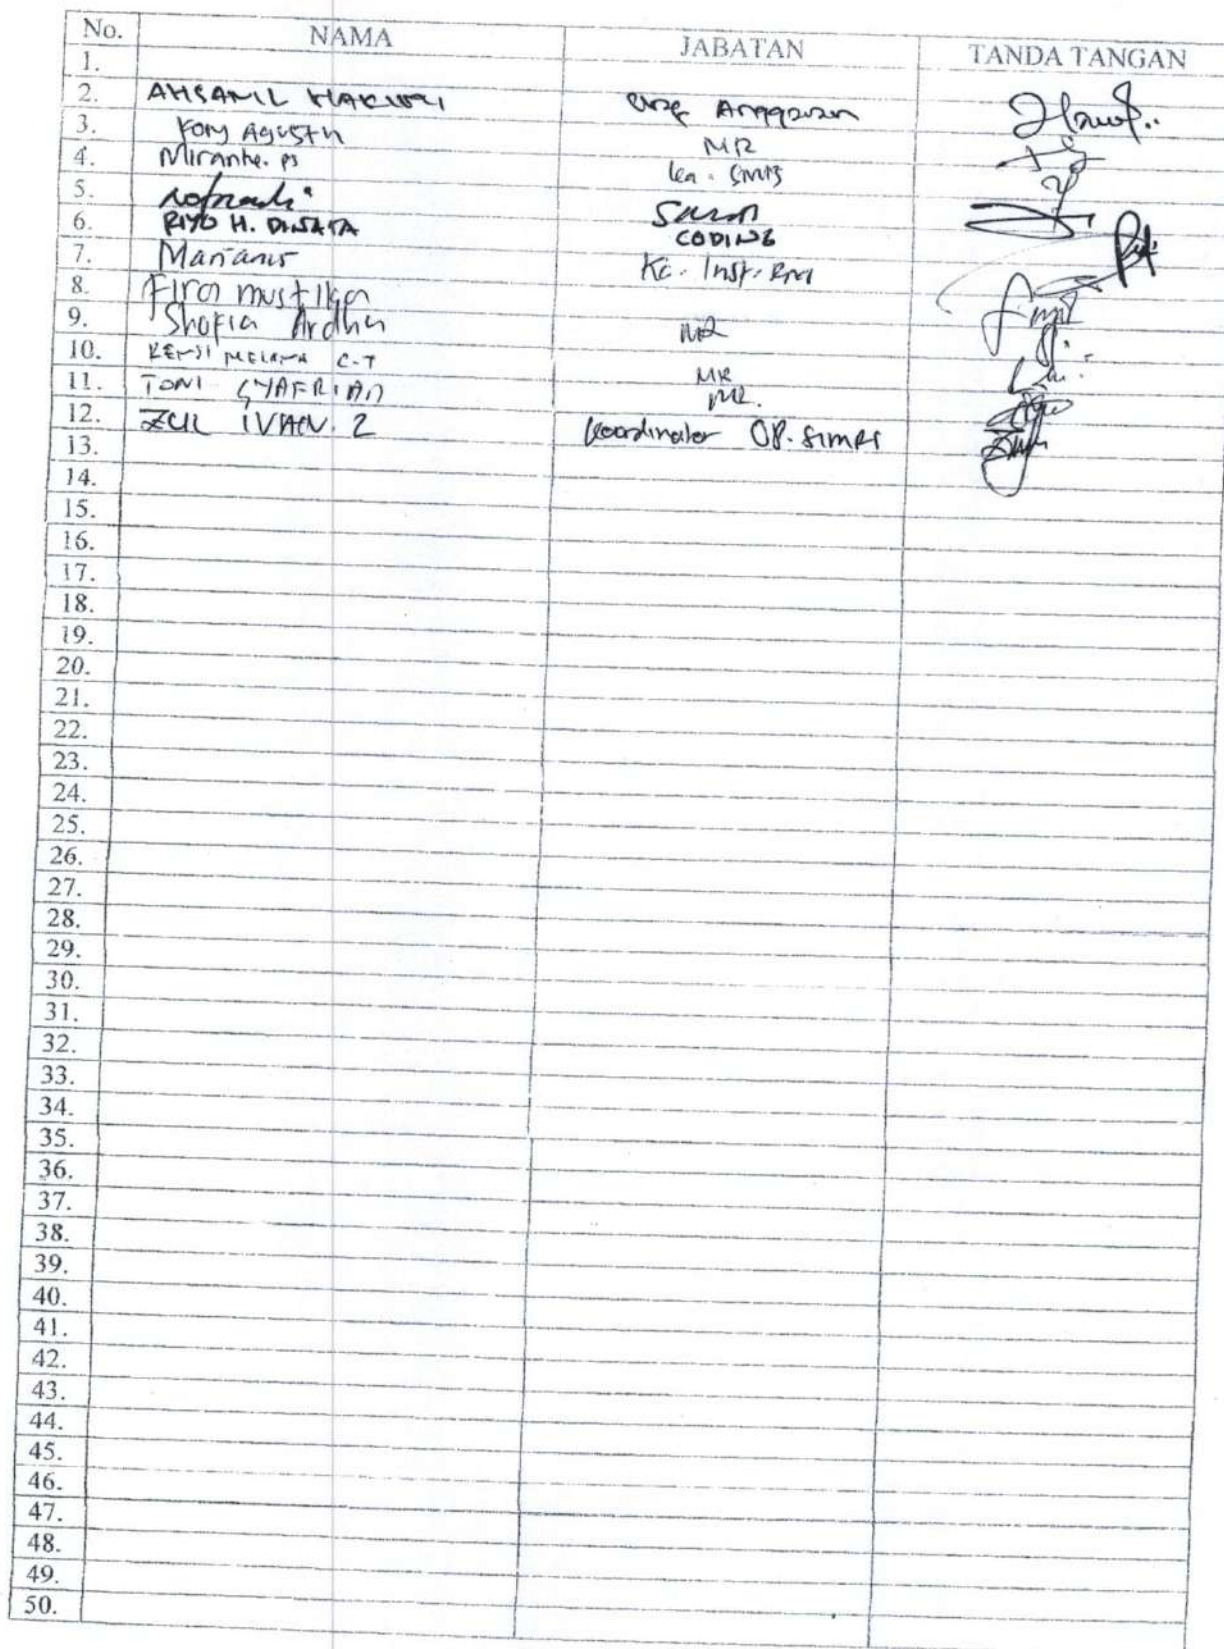 No. NAMA JABATAN TANDA TANGAN
1.
2. AHSANIL Anggaran
3. Fony Agustin MR
4. Miranhe. ps Ka.
5.
6. RIYO H. DINATA CODING
7. Marianis Ka. Inst. RM
8. Fira mustika
9. Shofia Ardha MR
10. KENSI MELANA C.T MR
11. TONI SYAFRIAN MR.
12. ZUL IVAN. Z Koordinator OP. SIMRS
13.
14.
15.
16.
17.
18.
19.
20.
21.
22.
23.
24.
25.
26.
27.
28.
29.
30.
31.
32.
33.
34.
35.
36.
37.
38.
39.
40.
41.
42.
43.
44.
45.
46.
47.
48.
49.
50.